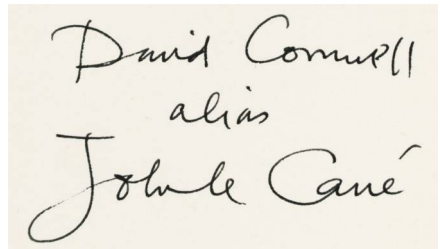 David Cornwell
alias
John le Carré